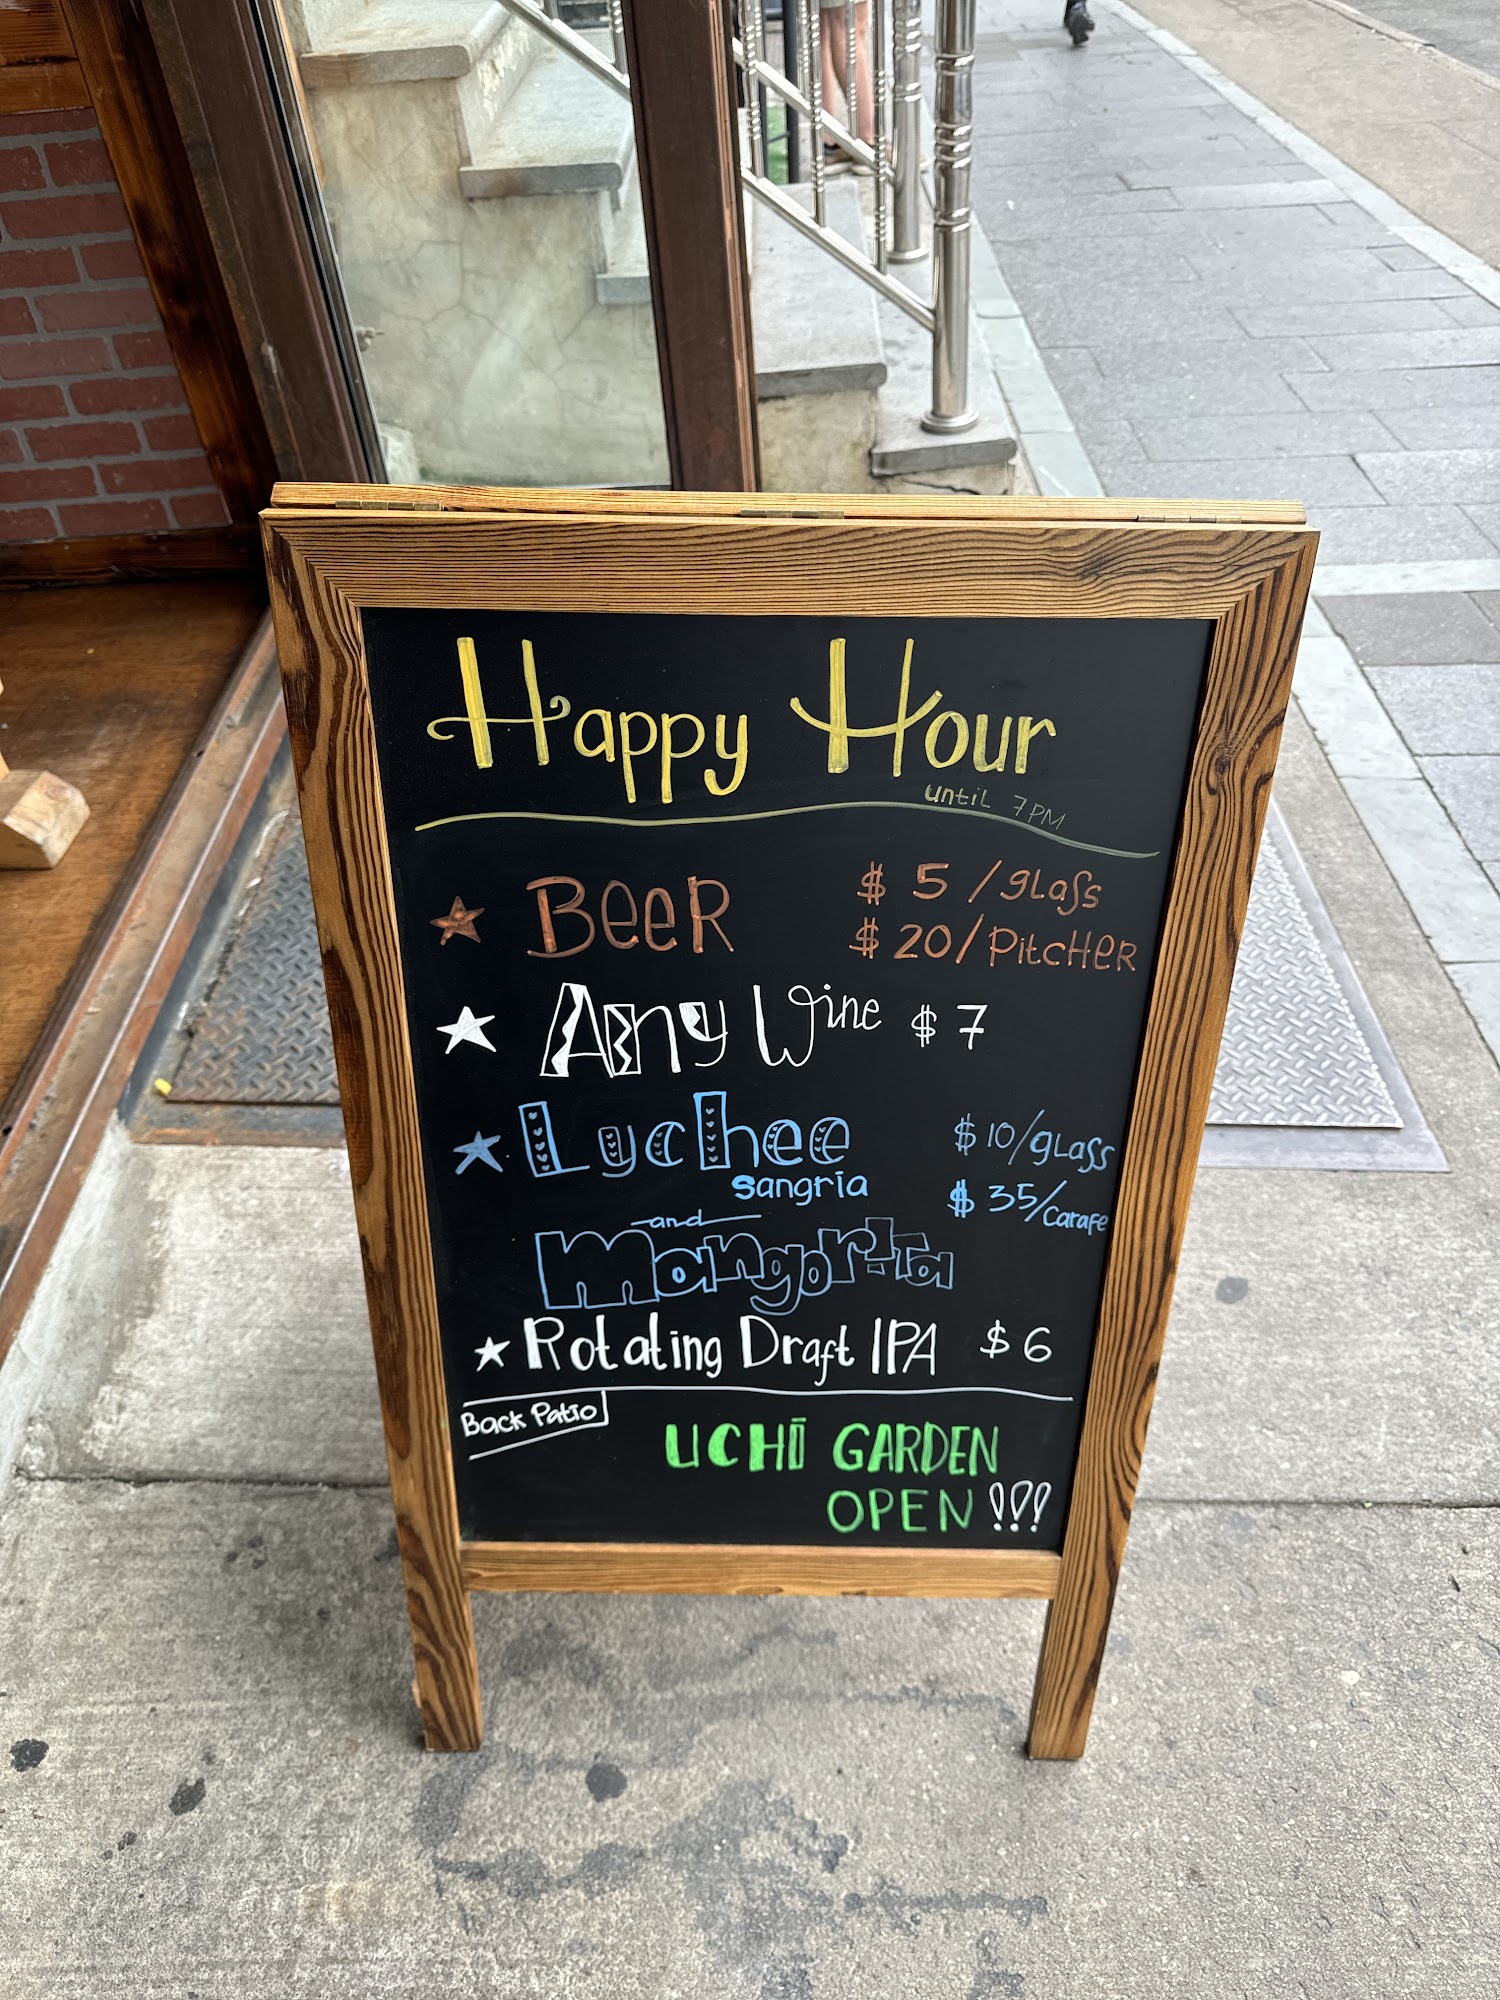 Happy Hour
until 7PM
Beer $5/glass
$20/Pitcher
Any Wine $7
Lychee $10/glass
Sangria $35/Carafe
and
Mangorita
Rotating Draft IPA $6
Back Patio
UCHI GARDEN
OPEN !!!